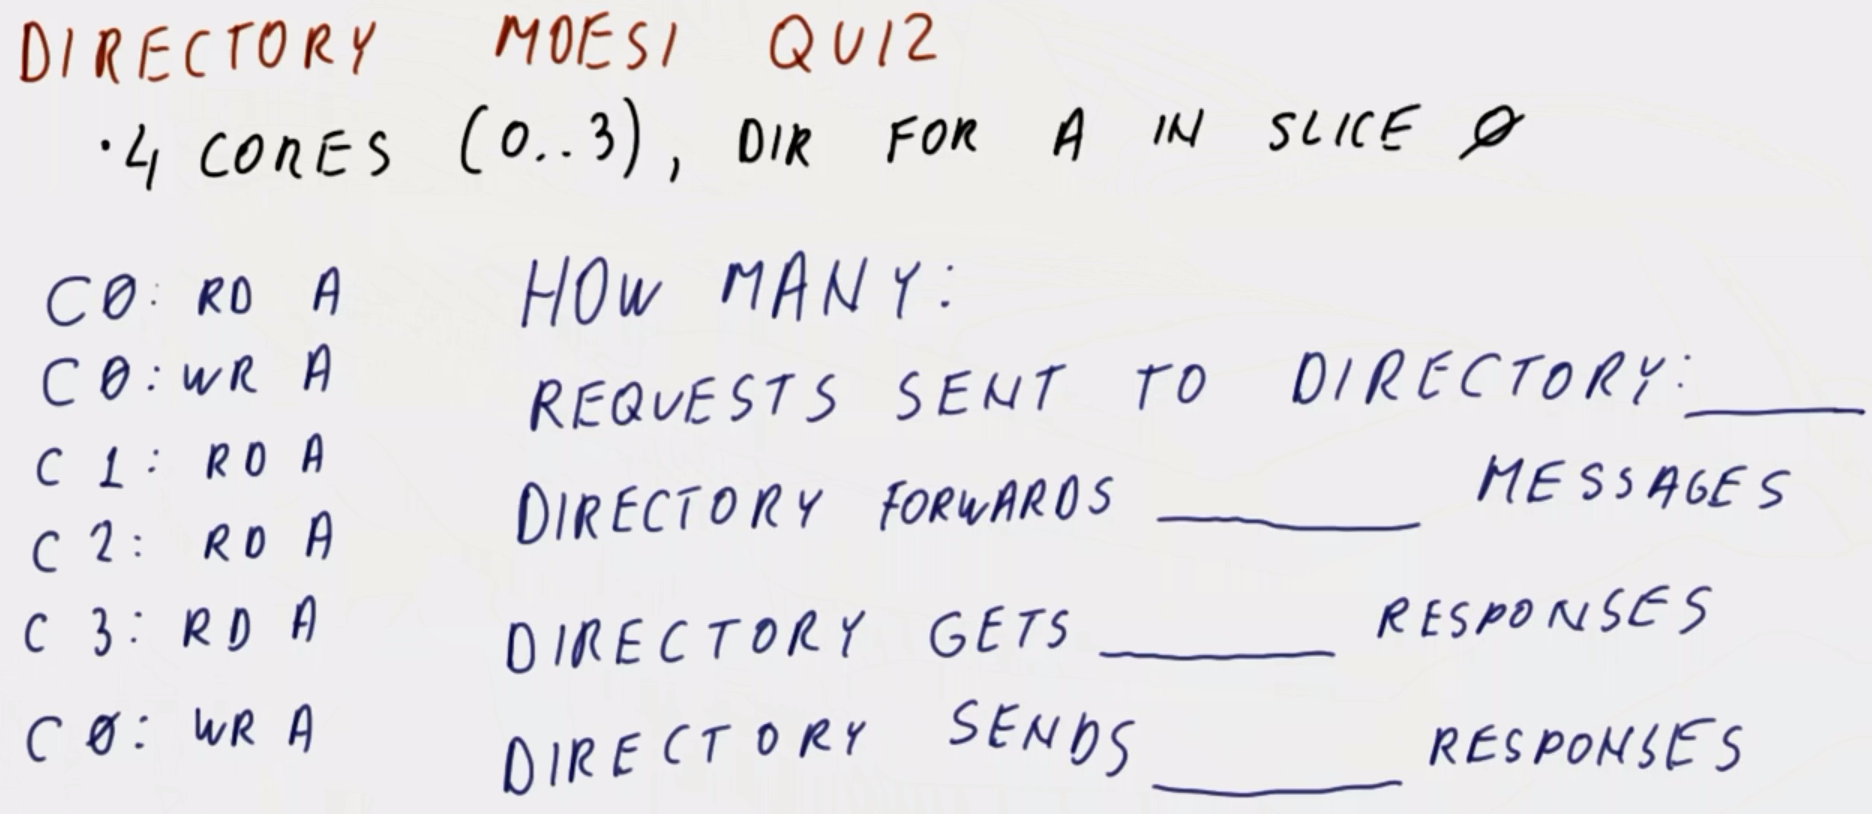 DIRECTORY MOESI QUIZ
· 4 CORES (0..3), DIR FOR A IN SLICE 0
C0: RD A
C0: WR A
C 1: RD A
C 2: RD A
C 3: RD A
C 0: WR A
HOW MANY:
REQUESTS SENT TO DIRECTORY: ____
DIRECTORY FORWARDS ____ MESSAGES
DIRECTORY GETS ____ RESPONSES
DIRECTORY SENDS ____ RESPONSES